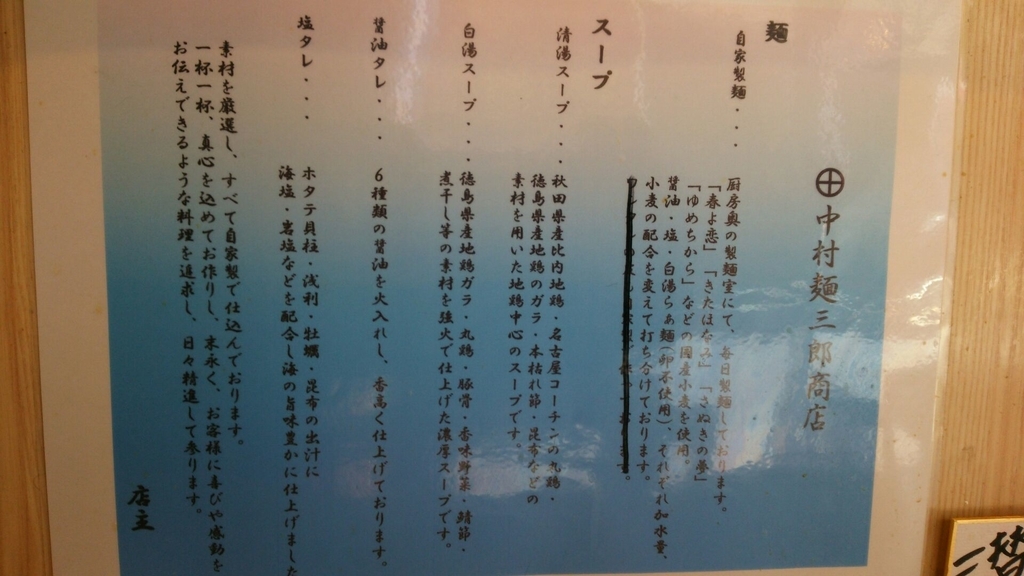 中村麺三郎商店
麺
自家製麺・・・
厨房奥の製麺室にて、毎日製麺しております。
「春よ恋」「きたほなみ」「さぬきの夢」
「ゆめちから」などの国産小麦を使用。
醤油・塩・白湯らぁ麺(卵不使用)、それぞれ加水量、
小麦の配合を変えて打ち分けております。
スープ
清湯スープ・・・・
秋田県産比内地鶏・名古屋コーチンの丸鶏・
徳島県産地鶏のガラ・本枯れ節・昆布などの
素材を用いた地鶏中心のスープです。
白湯スープ・・・・
徳島県産地鶏ガラ・丸鶏・豚骨・香味野菜・鯖節・
煮干し等の素材を強火で仕上げた濃厚スープです。
醤油タレ・・・
6種類の醤油を火入れし、香高く仕上げております。
塩タレ・・・
ホタテ貝柱・浅利・牡蠣・昆布の出汁に
海塩・岩塩などを配合し海の旨味豊かに仕上げました
素材を厳選し、すべて自家製で仕込んでおります。
一杯一杯、真心を込めてお作りし、末永く、お客様に喜びや感動を
お伝えできるような料理を追求し、日々精進して参ります。
店主